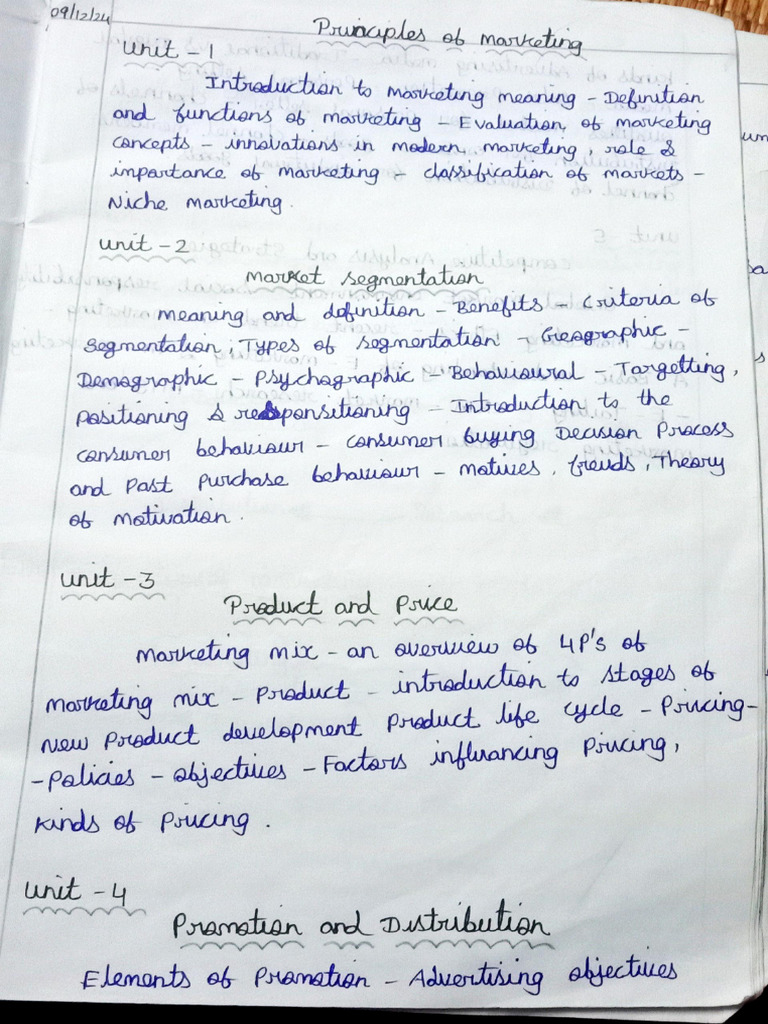 09/12/24
Principles of marketing
unit - 1
Introduction to marketing meaning - Definition
and functions of marketing - Evaluation of marketing
concepts - innovations in modern marketing, role &
importance of marketing - classification of markets -
Niche marketing.
unit - 2
market segmentation
meaning and definition - Benefits - Criteria of
segmentation, Types of segmentation - Geographic -
Demographic - Psychographic - Behavioural - Targetting,
positioning & repositioning - Introduction to the
consumer behaviour - consumer buying Decision Process
and Past Purchase behaviour - motives, freuds, Theory
of motivation.
unit - 3
Product and Price
marketing mix - an overview of 4P's of
marketing mix - Product - introduction to stages of
new product development product life cycle - Pricing -
- Policies - objectives - Factors influancing pricing,
kinds of Pricing.
unit - 4
Promotion and Distribution
Elements of Promotion - Advertising objectives